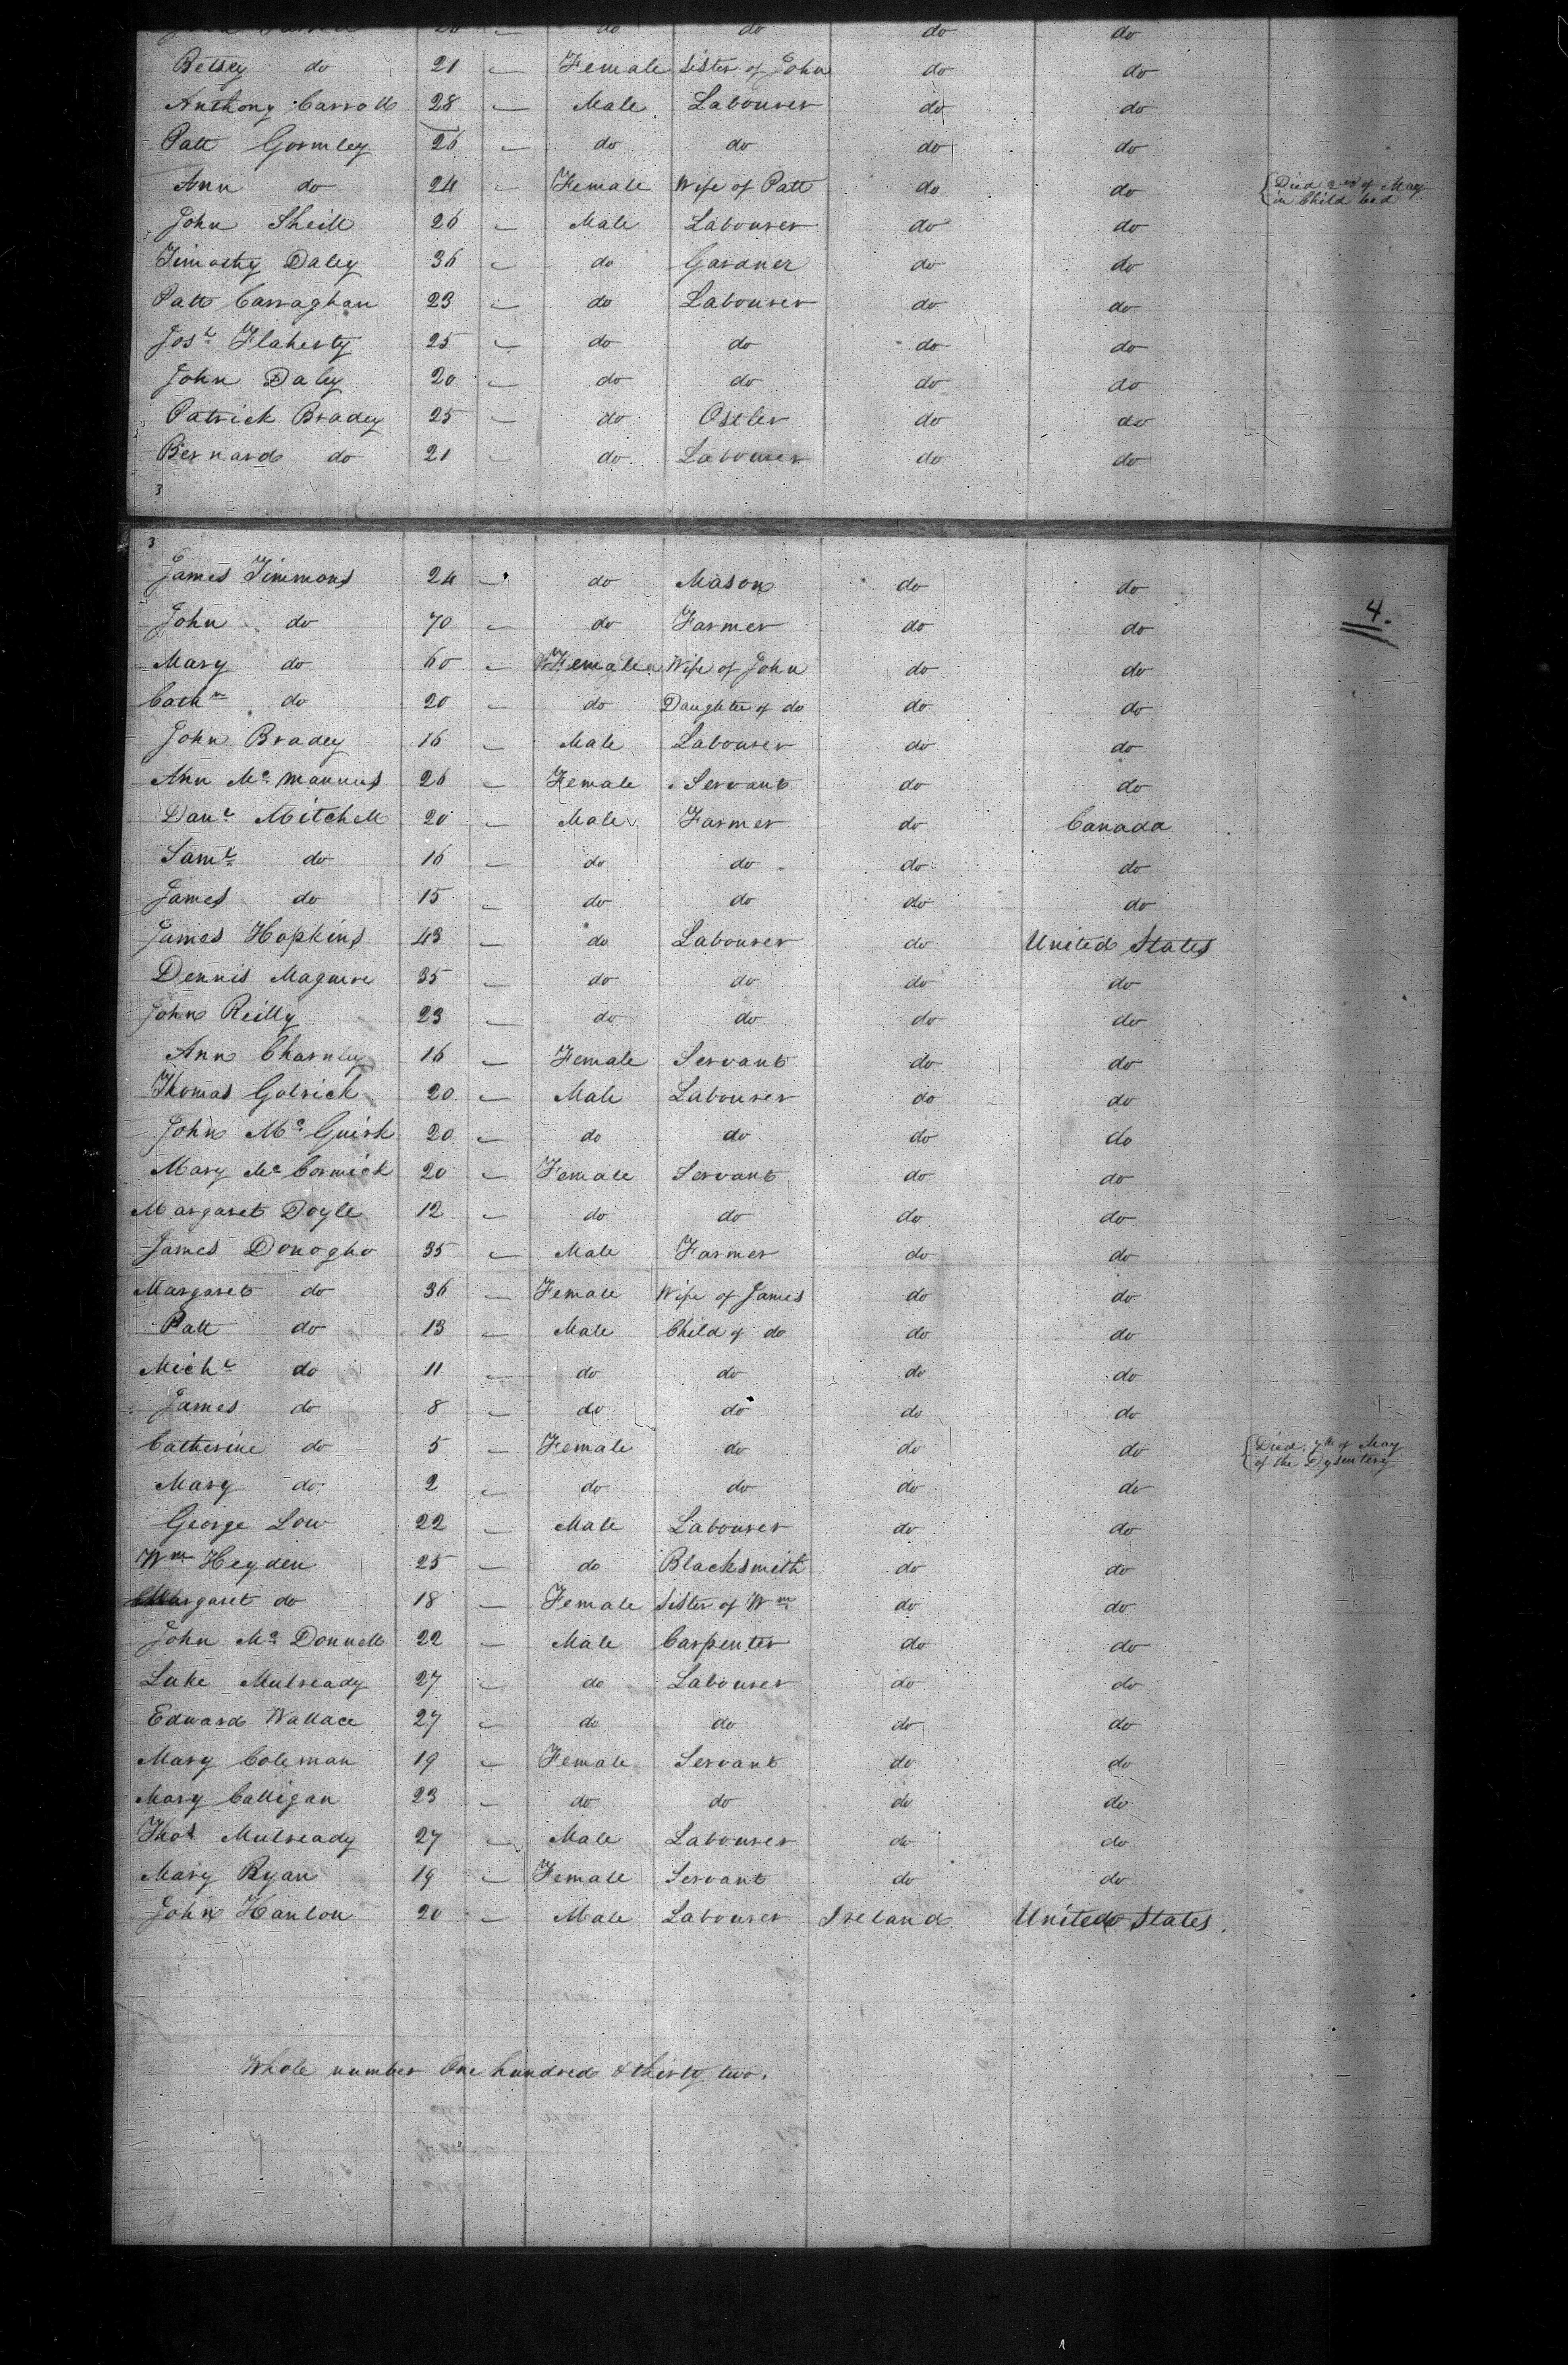 20 — do do do do
Betsey do 21 — Female Sister of John do do
Anthony Carroll 28 — Male Labourer do do
Patt Gormley 26 — do do do do
Ann do 24 — Female Wife of Patt do do {Died 2nd of May in Child bed
John Sheill 26 — Male Labourer do do
Timothy Daley 36 — do Gardner do do
Patt Carraghan 23 — do Labourer do do
Josh Flaherty 25 — do do do do
John Daley 20 — do do do do
Patrick Bradey 25 — do Ostler do do
Bernard do 21 — do Labourer do do
3
3
James Timmons 24 — do Mason do do
4.
John do 70 — do Farmer do do
Mary do 60 — Female Wife of John do do
Cathn do 20 — do Daughter of do do do
John Bradey 16 — Male Labourer do do
Ann Mc Mannus 26 — Female Servant do do
Danl Mitchell 20 — Male Farmer do Canada
Saml do 16 — do do do do
James do 15 — do do do do
James Hopkins 43 — do Labourer do United States
Dennis Maguire 35 — do do do do
John Reilly 23 — do do do do
Ann Charnley 16 — Female Servant do do
Thomas Golrick 20 — Male Labourer do do
John Mc Guirk 20 — do do do do
Mary Mc Cormick 20 — Female Servant do do
Margaret Doyle 12 — do do do do
James Donogho 35 — Male Farmer do do
Margaret do 36 — Female Wife of James do do
Patt do 13 — Male Child of do do do
Michl do 11 — do do do do
James do 8 — do do do do
Catherine do 5 — Female do do do {Died 7th of May of the Dysentery
Mary do 2 — do do do do
George Low 22 — Male Labourer do do
Wm Heyden 25 — do Blacksmith do do
Margaret do 18 — Female Sister of Wm do do
John Mc Donnell 22 — Male Carpenter do do
Luke Mulready 27 — do Labourer do do
Edward Wallace 27 — do do do do
Mary Coleman 19 — Female Servant do do
Mary Calligan 23 — do do do do
Thos Mulready 27 — Male Labourer do do
Mary Ryan 19 — Female Servant do do
John Hanlon 20 — Male Labourer Ireland United States.
Whole number One hundred & thirty two.